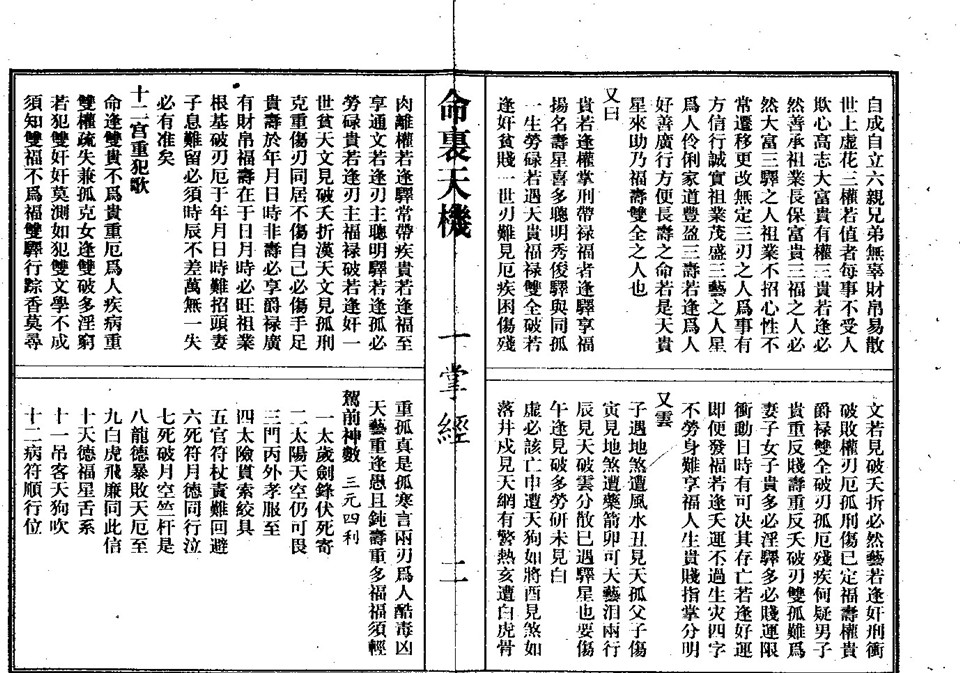 自成自立六親兄弟無辜財帛易散
世上虛花三權若值者每事不受人
欺心高志大富貴有權三貴若逢必
然善承祖業長保富貴三福之人必
然大富三驛之人祖業不招心性不
常遷移更改無定三刃之人爲事有
方信行誠實祖業茂盛三藝之人星
爲人伶俐家道豊盈三壽若逢爲人
好善廣行方便長壽之命若是天貴
星來助乃福壽雙全之人也
又曰
貴若逢權掌刑帶禄福者逢驛享福
揚名壽星喜多聰明秀俊驛與同孤
一生勞碌若遇天貴福禄雙全破若
逢奸貧賤一世刃難見厄疾困傷殘
文若見破夭折必然藝若逢奸刑衝
破敗權刃厄孤刑傷已定福壽權貴
爵禄雙全破刃孤厄殘疾何疑男子
貴重反賤壽重反夭破刃雙孤難爲
妻子女子貴多必淫驛多必賤運限
衝動日時有可决其存亡若逢好運
即便發福若逢夭運不過生灾四字
不勞身難亨福人生貴賤指掌分明
又雲
子遇地煞遭風水丑見天孤父子傷
寅見地煞遭藥箭卯可天藝泪兩行
辰見天破雲分散巳遇驛星也要傷
午逢見破多勞研未見白
虛必該亡申遭天狗如將酉見煞如
落井戍見天網有警熱亥遭白虎骨
命裏天機
一掌經
二
肉離權若逢驛常帶疾貴若逢福至
享通文若逢刃主聰明驛若逢孤必
勞碌貴若逢刃主福禄破若逢奸一
世貧天文見破夭折漢天文見孤刑
克重傷刃同居不傷自己必傷手足
貴壽於年月日時非壽必享爵禄廣
有財帛福壽在于日月時必旺祖業
根基破刃厄于年月日時難招頭妻
子息難留必須時辰不差萬無一失
必有准矣
十二宫重犯歌
命逢雙貴不爲貴重厄爲人疾病重
雙權疏失兼孤克女逢雙破多淫窮
若犯雙奸奸莫測如犯雙文學不成
須知雙福不爲福雙驛行踪香莫尋
重孤真是孤寒言兩刃爲人酷毒凶
天藝重逢愚且鈍壽重多福福須輕
駕前神數 三元四利
一太歲劍鋒伏死寄
二太陽天空仍可畏
三門丙外孝服至
四太險貫索絞具
五官符杖責難回避
六死符月德同行泣
七死破月空竺杆是
八龍德暴敗天厄至
九白虎飛廉同此信
十天德福星舌系
十一吊客天狗吹
十二病符順行位